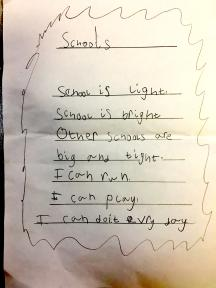 Schools
School is light.
School is bright
Other schools are
big and tight.
I can run.
I can play.
I can doit evry day